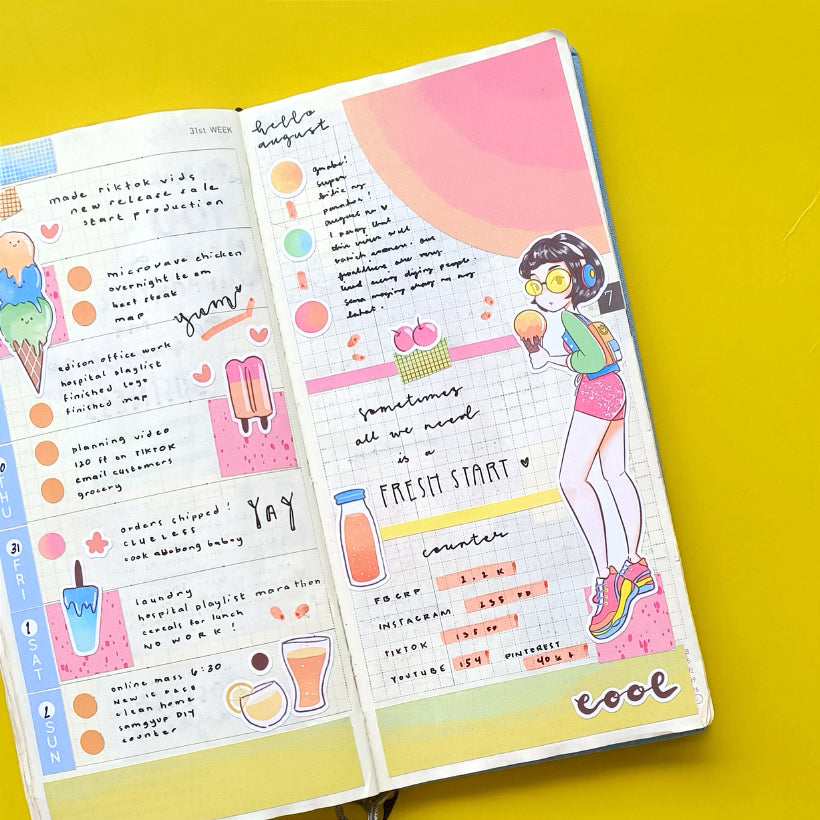 31st WEEK
made riktok vids
new release sale
start production
microwave chicken
overnight team
beef steak
map
yum
edison office work
hospital playlist
finished logo
finished map
planning video
120 ff on TIKTOK
email customers
grocery
THU
orders shipped!
CLUELESS
cook adobong baboy
YAY
31
FRI
laundry
hospital playlist marathon
cereals for lunch
NO WORK!
1
SAT
online mass 6:30
NEW IG PAGE
clean home
samgyup DIY
counter
2
SUN
hello
august
grabe!
super
bilis ng
panahon!
august na
I pray that
this virus will
vanish
frontliners are very
tired
lahat.
7
sometimes
all we need
is a
FRESH START
counter
FB GRP 2.2 K
INSTAGRAM 235 FF
TIKTOK 133 FF
YOUTUBE 154 PINTEREST 40 K+
cool